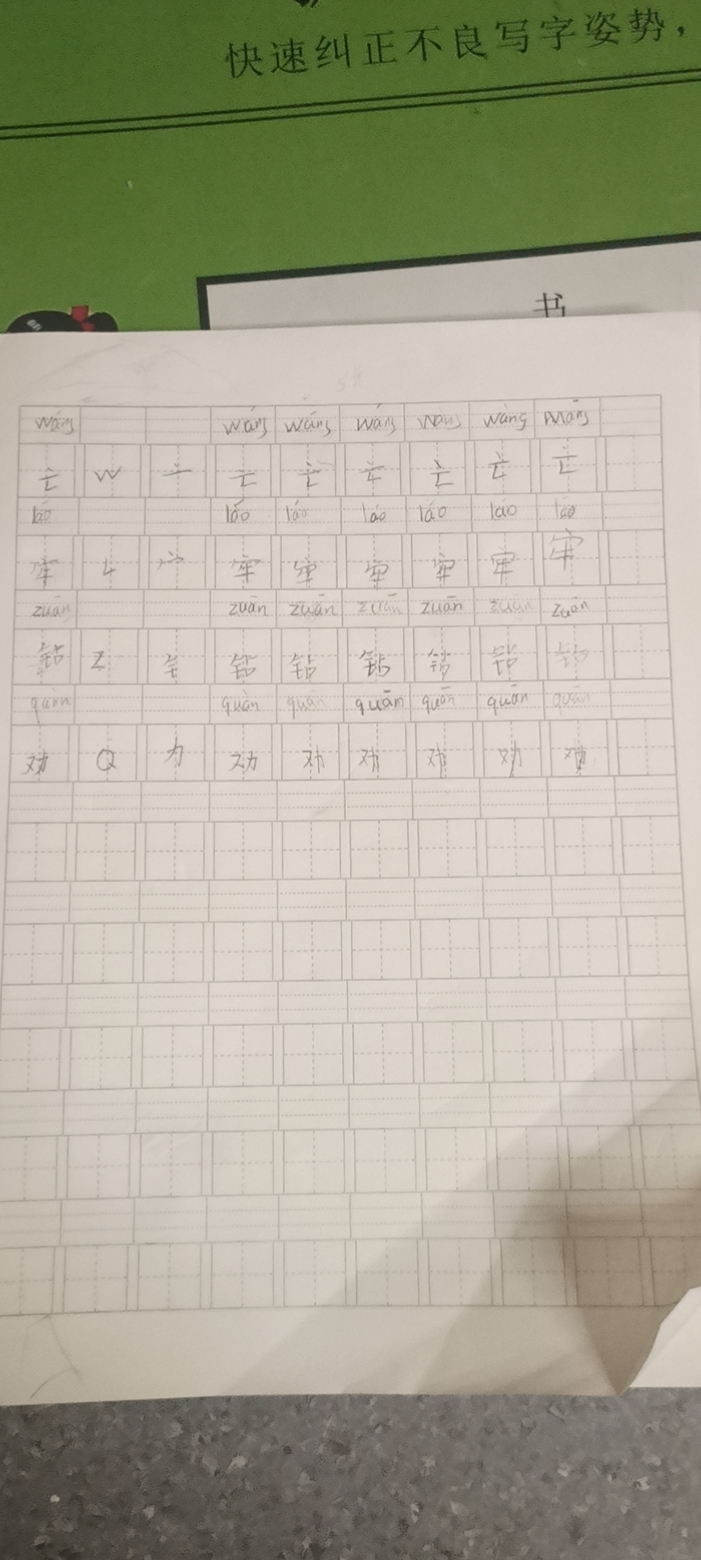 快速纠正不良写字姿势，
书
wáng wáng wáng wáng wang wàng wāng
亡 W 亠 亡 亡 亡 亡 亡 亡
láo láo láo láo láo lao láo
牢 L 宀 牢 牢 牢 牢 牢 牢
zuān zuān zuān zuān zuān zuān zuān
钻 Z 钅 钻 钻 钻 钻 钻 钻
quàn quàn quān quān quān quān quān
劝 Q 力 劝 劝 劝 劝 劝 劝